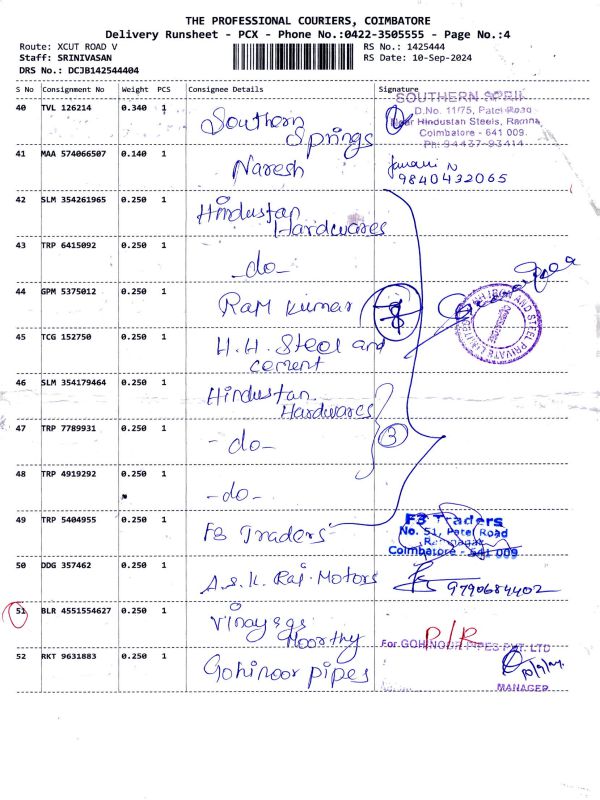 THE PROFESSIONAL COURIERS, COIMBATORE
Delivery Runsheet - PCX - Phone No.:0422-3505555 - Page No.:4
Route: XCUT ROAD V
RS No.: 1425444
Staff: SRINIVASAN
RS Date: 10-Sep-2024
DRS No.: DCJB142544404
S No Consignment No Weight PCS Consignee Details Signature
40 TVL 126214 0.340 1 Southern Springs
SOUTHERN
D.No. 11/75, Patel Road
Near Hindustan Steels, Ramna
Coimbatore - 641 009.
Ph: 94437-93414
41 MAA 574066507 0.140 1 Naresh
N
9840432065
42 SLM 354261965 0.250 1 Hindustan Hardwares
43 TRP 6415092 0.250 1 -do-
44 GPM 5375012 0.250 1 Ram Kumar
45 TCG 152750 0.250 1 H.H. Steel and cement
IRON AND STEEL PRIVATE LIMITED
46 SLM 354179464 0.250 1 Hindustan Hardwares
47 TRP 7789931 0.250 1 -do- 3
48 TRP 4919292 0.250 1 -do-
49 TRP 5404955 0.250 1 F3 Traders
F3 Traders
No. 51, Patel Road
Ramnagar
Coimbatore - 641 009
50 DDG 357462 0.250 1 A.S.K. Raj. Motors
9790684402
51 BLR 4551554627 0.250 1 Vinayaga Moorthy R/R
52 RKT 9631883 0.250 1 Gohinoor pipes
For GOHINOOR PIPES PVT. LTD
10/9/24
MANAGER